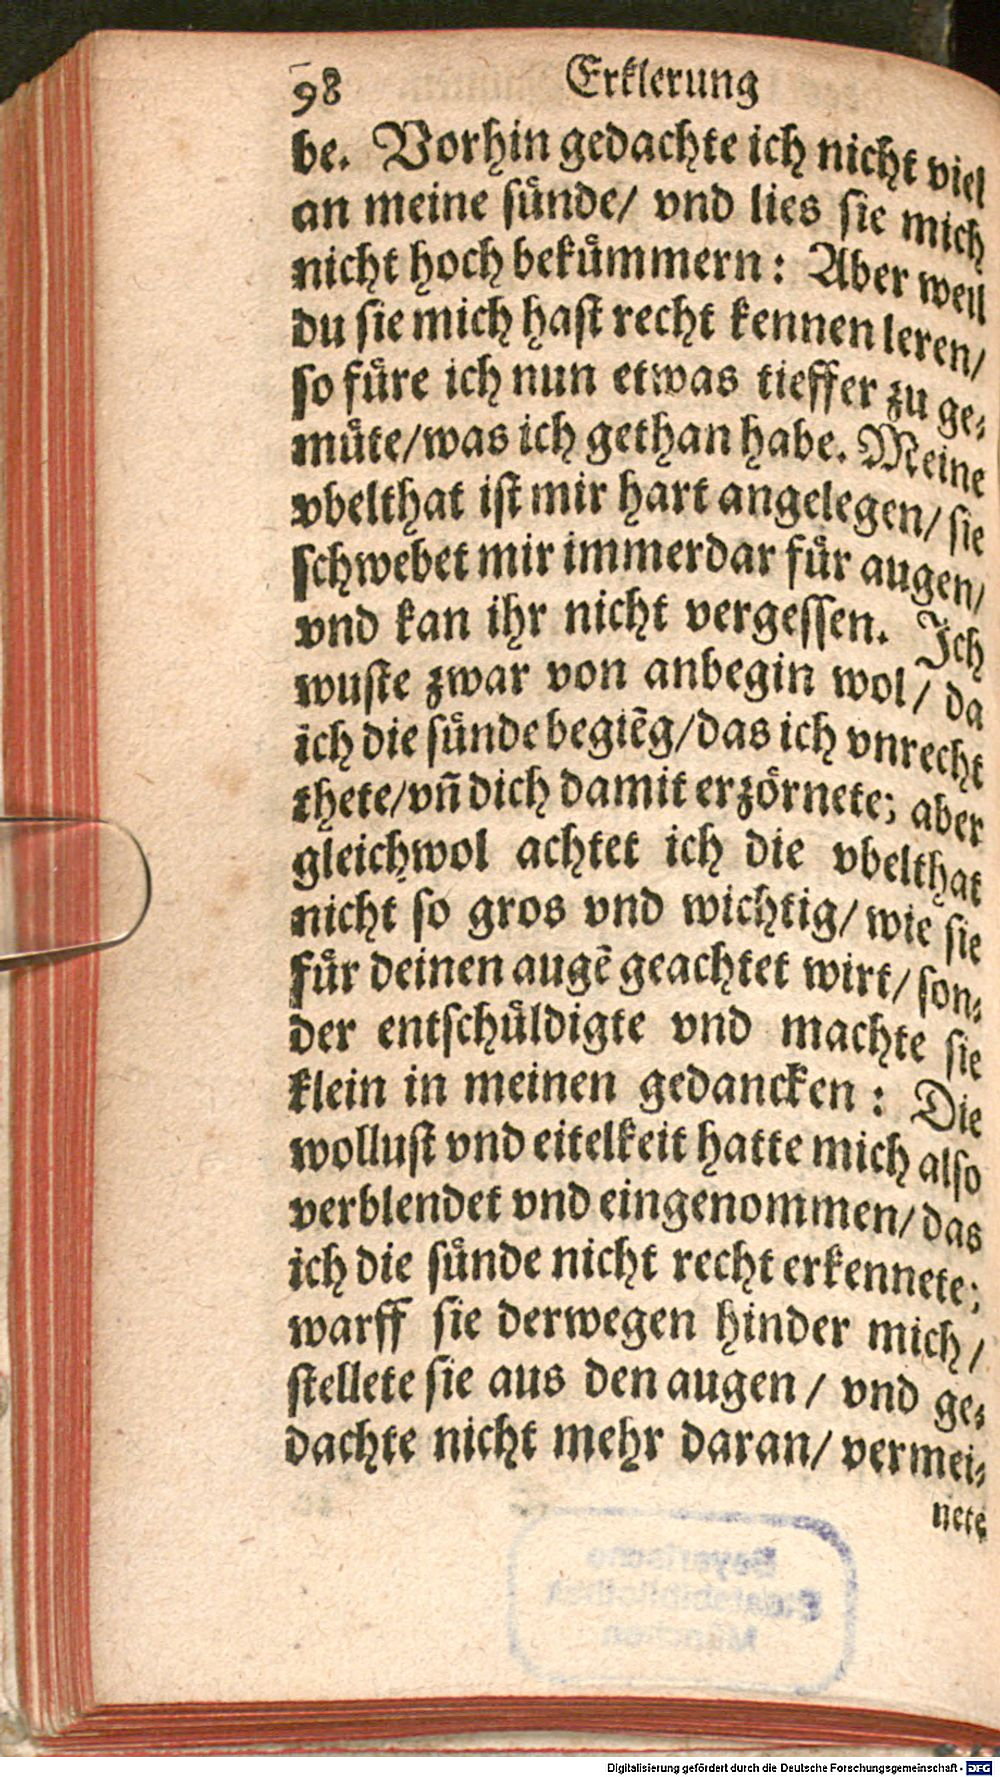 98 Erklerung
be. Vorhin gedachte ich nicht viel
an meine ſuͤnde/ vnd lies ſie mich
nicht hoch bekuͤmmern: Aber weil
du ſie mich haſt recht kennen leren/
ſo fuͤre ich nun etwas tieffer zu ge⸗
muͤte/was ich gethan habe. Meine
vbelthat iſt mir hart angelegen/ ſie
ſchwebet mir immerdar fuͤr augen/
vnd kan ihr nicht vergeſſen. Ich
wuſte zwar von anbegin wol/ da
ich die ſuͤnde begiēg/das ich vnrecht
thete/vn̄ dich damit erzoͤrnete; aber
gleichwol achtet ich die vbelthat
nicht ſo gros vnd wichtig/ wie ſie
fuͤr deinen augē geachtet wirt/ ſon⸗
der entſchuͤldigte vnd machte ſie
klein in meinen gedancken: Die
wolluſt vnd eitelkeit hatte mich alſo
verblendet vnd eingenommen/das
ich die ſuͤnde nicht recht erkennete;
warff ſie derwegen hinder mich/
ſtellete ſie aus den augen/ vnd ge⸗
dachte nicht mehr daran/ vermei⸗
nete
Bayerische
Staatsbibliothek
München
Digitalisierung gefördert durch die Deutsche Forschungsgemeinschaft - DFG